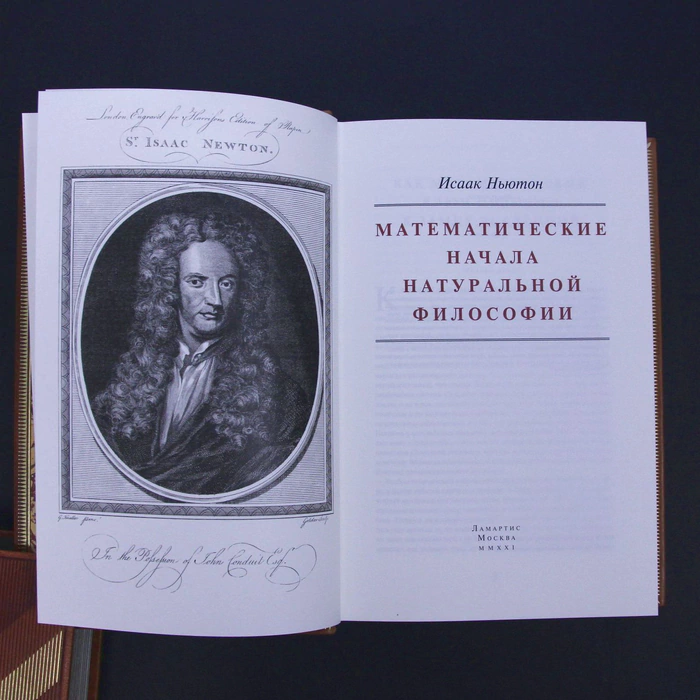 London Engrav'd for Harrison's Edition of Rapin.
Sr. ISAAC NEWTON.
In the Possession of John Conduit Esqr.
Исаак Ньютон
МАТЕМАТИЧЕСКИЕ
НАЧАЛА
НАТУРАЛЬНОЙ
ФИЛОСОФИИ
ЛАМАРТИС
МОСКВА
MMXXI